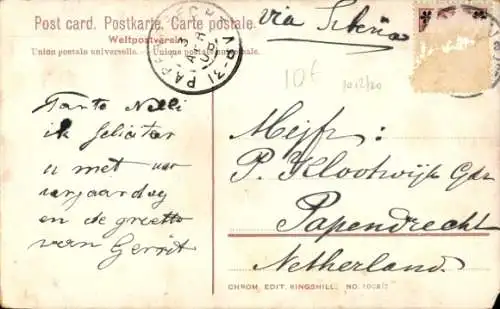 Post card. Postkarte. Carte postale.
Weltpostverein
Union postale universelle. Unione postale universale.
via Siberia
10€
1012/20
Tante Nelli
ik feliciteer
u met uw
verjaardag
en de groeten
van Gerrit
Mejfr:
P. Klootwijk Gdr
Papendrecht
Netherland.
CHROM. EDIT. KINGSHILL. NO.